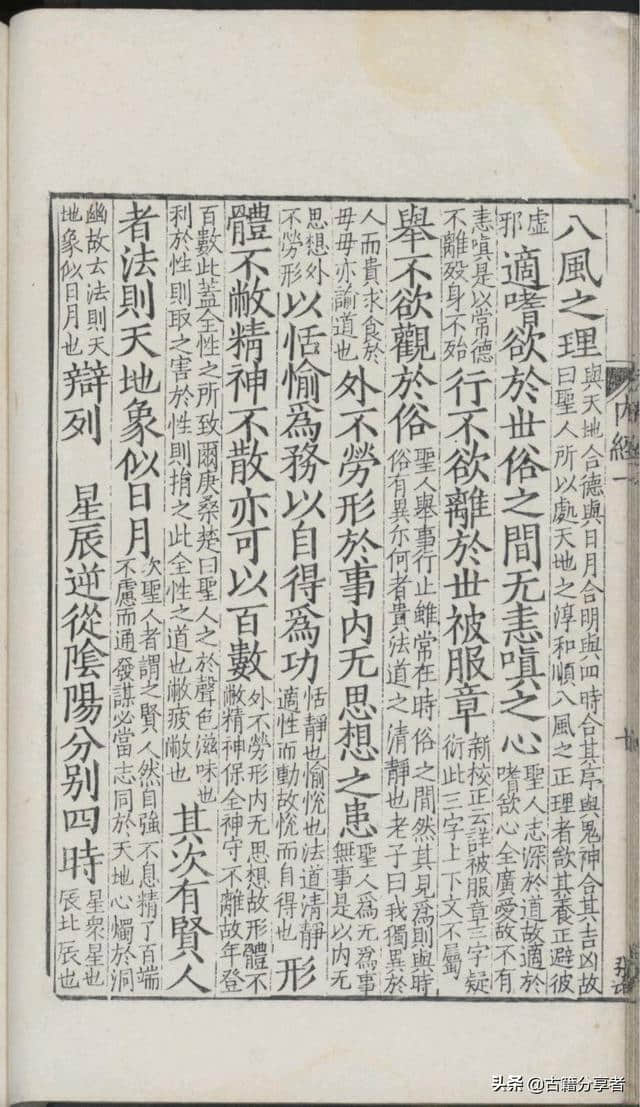 八風之理與天地合德與日月合明與四時合其序與鬼神合其吉凶故曰聖人所以處天地之淳和順八風之正理者欲其養正避彼
虛邪適嗜欲於世俗之間无恚嗔之心聖人志深於道故適於嗜欲心全廣愛故不有
恚嗔是以常德不離歿身不殆行不欲離於世被服章新校正云詳被服章三字疑衍此三字上下文不屬
舉不欲觀於俗聖人舉事行止雖常在時俗之間然其見爲則與時俗有異尔何者貴法道之清靜也老子曰我獨異於
人而貴求食於母母亦諭道也外不勞形於事内无思想之患聖人爲无爲事無事是以内无
思想外不勞形以恬愉爲務以自得爲功恬靜也愉恱也法道清靜適性而動故恱而自得也形
體不敝精神不散亦可以百數外不勞形内无思想故形體不敝精神保全神守不離故年登
百數此蓋全性之所致爾庚桑楚曰聖人之於聲色滋味也利於性則取之害於性則捐之此全性之道也敝疲敝也其次有賢人
者法則天地象似日月次聖人者謂之賢人然自強不息精了百端不慮而通發謀必當志同於天地心燭於洞
幽故去法則天地象似日月也辯列 星辰逆從陰陽分别四時星衆星也辰北辰也
内經一
头条@古籍分享者